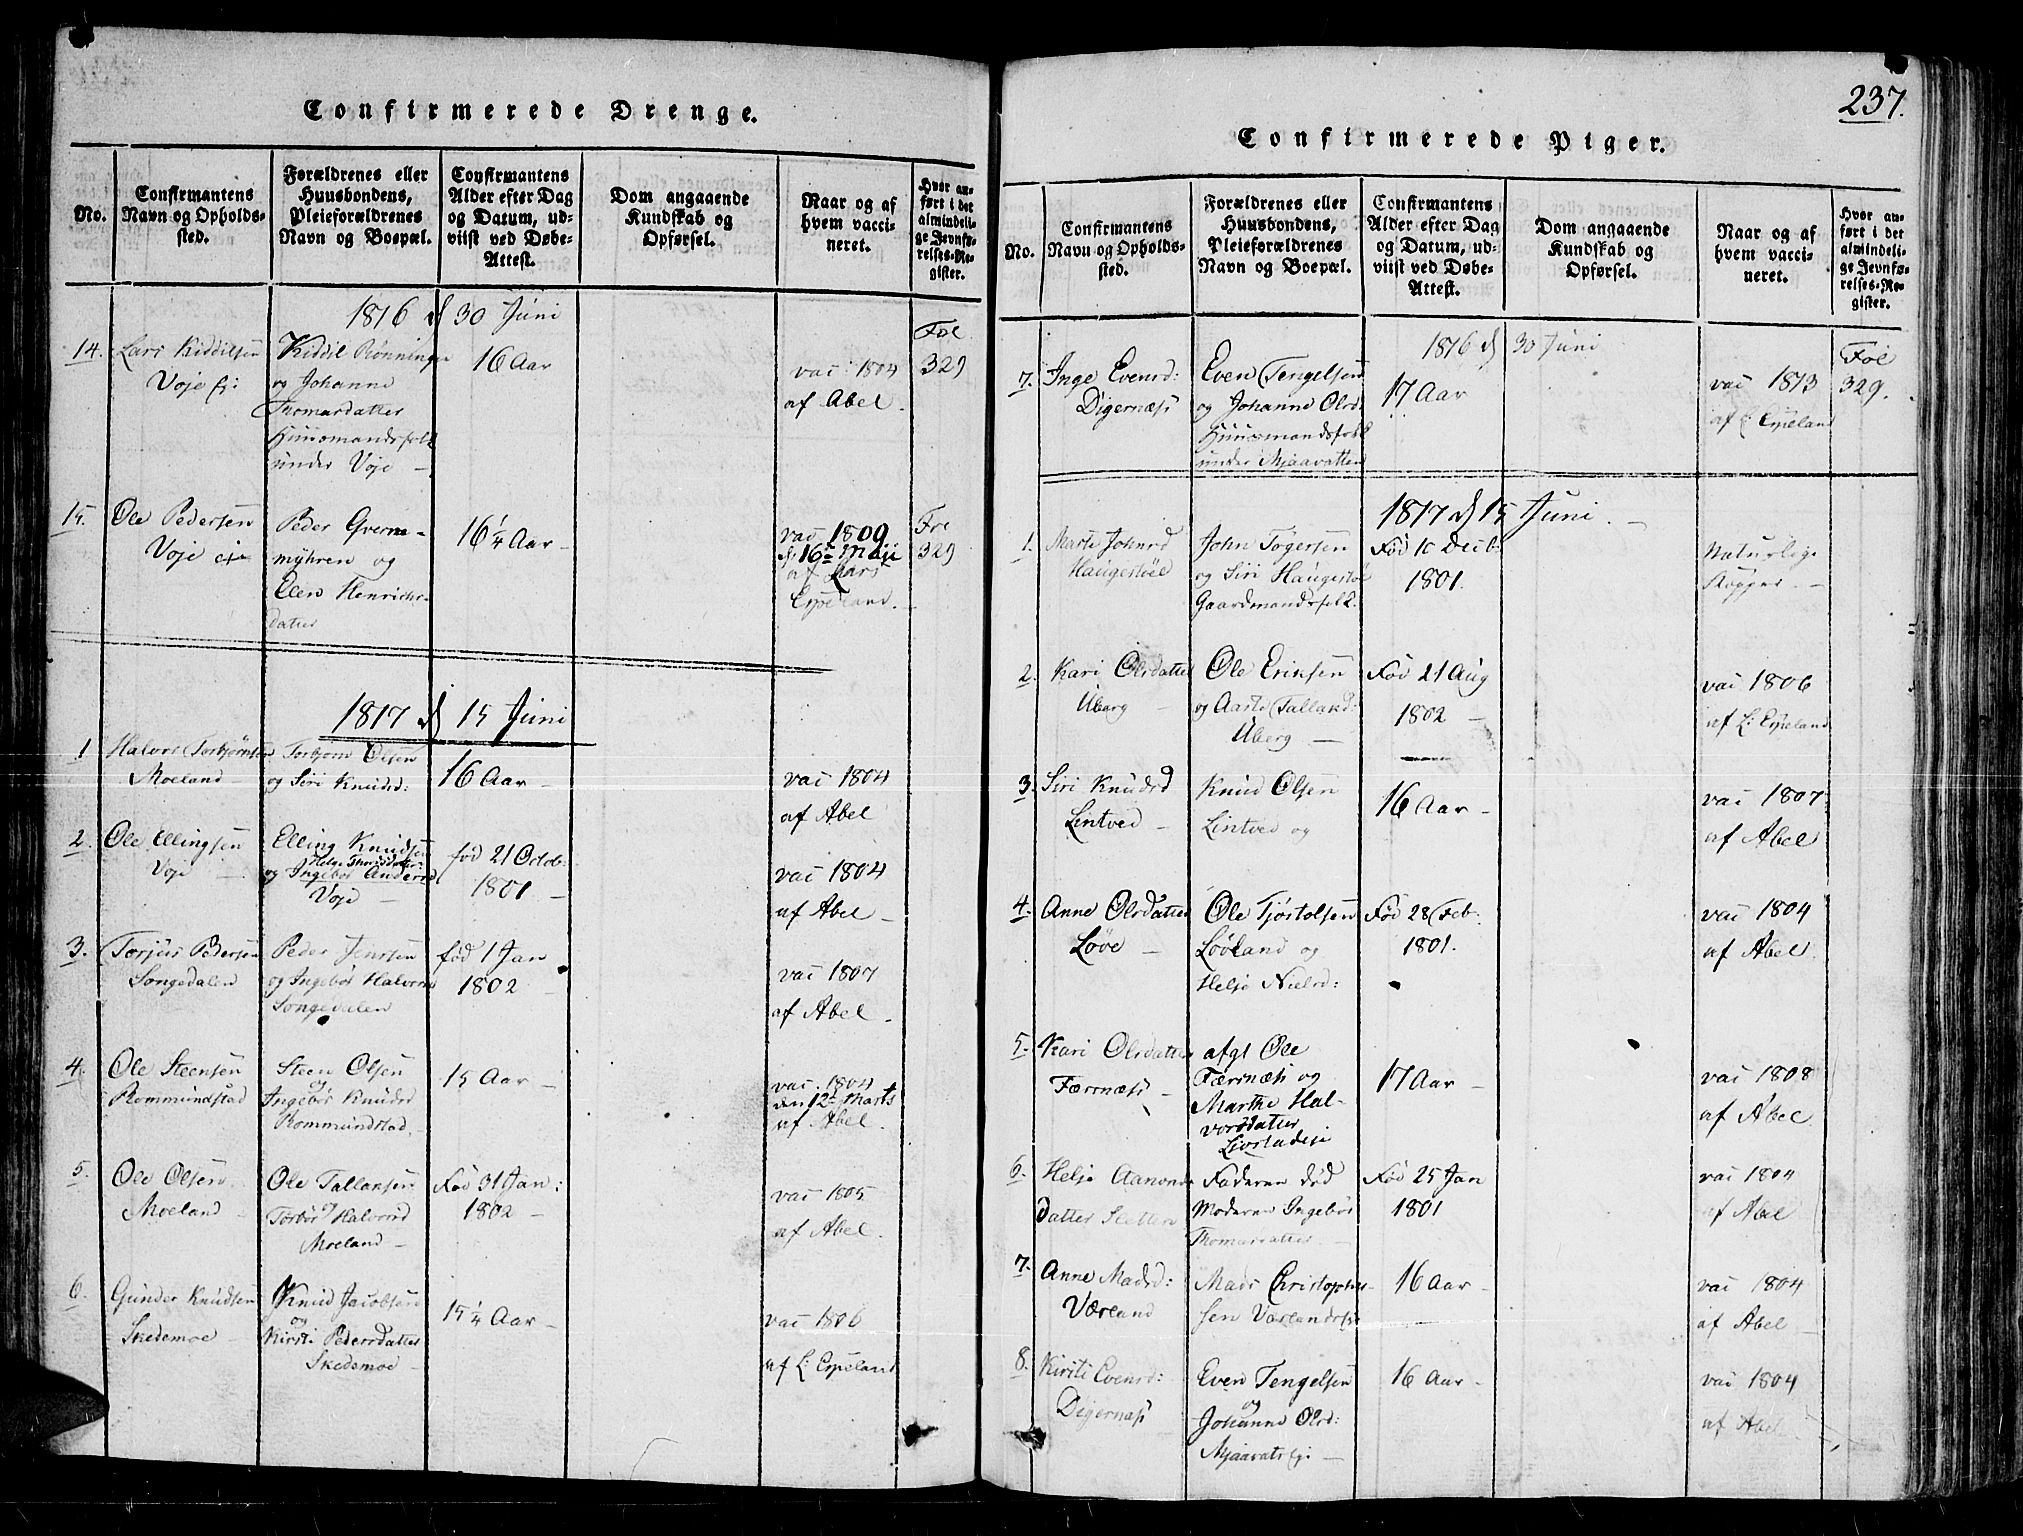 Confirmerede Drenge.
No.
Confirmantens
Navn og Opholds-
sted.
Forældrenes eller
Huusbondens,
Pleieforældrenes
Navn og Boepæl.
Confirmantens
Alder efter Dag
og Datum, ud-
viist ved Døbe-
Attest.
Dom angaaende
Kundskab og
Opførsel.
Naar og af
hvem vacci-
neret.
Hvor an-
ført i det
almindeli-
ge Jevnfø-
relses-Re-
gister.
1816 d 30 Juni
14.
Lars Kiddilsen
Voje
Kiddil Rønningen
og Johanne
Thomasdatter
Huusmandsfolk
under Voje
16 Aar
vac 1804
af Abel
Fol
329
15.
Ole Pedersen
Voje eje
Peder Qverne-
myhren og
Elen Henrichs-
datter
16¼ Aar
vac 1809
d. 16de Maji
af Lars
Espeland.
329
1817 d 15 Juni
1
Halvor Torbjørnsen
Moeland
Torbjørn Olsen
og Siri Knudsd:
16 Aar
vac 1804
af Abel
2.
Ole Ellingsen
Voje
Elling Knudsen
Helge Thorsdatter
og Ingebor Andersd
Voje
fød 21 Octob:
1801
vac 1804
af Abel
3.
Torjus Pedersen
Songedalen
Peder Jensen
og Ingebor Halvorsd
Songedalen
fød 1 Jan
1802
vac 1807
af Abel
4.
Ole Steensen
Rommundstad
Steen Olsen
og
Ingebor Knudsd
Rommundstad
15 Aar
vac. 1804
den 12te Marts
af Abel.
5.
Ole Olsen
Moeland
Ole Tallaksen
og
Torbor Halvorsd
Moeland
Fød 31 Jan:
1802
vac 1805
af Abel.
6.
Gunder Knudsen
Skedemoe
Knud Jacobsen
og
Kirsti Pedersdatter
Skedemoe
15¼ Aar
vac 1806
af L: Espeland
237.
Confirmerede Piger.
No.
Confirmantens
Navn og Opholds-
sted.
Forældrenes eller
Huusbondens,
Pleieforældrenes
Navn og Boepæl.
Confirmantens
Alder efter Dag
og Datum, ud-
viist ved Døbe-
Attest.
Dom angaaende
Kundskab og
Opførsel.
Naar og af
hvem vacci-
neret.
Hvor an-
ført i det
almindeli-
ge Jevnfø-
relses-Re-
gister.
1816 d 30 Juni
7.
Inge Evensd:
Digernæs
Even Tengelsen
og Johanne Olsd:
Huusmandsfolk
under Mjaavatten
17 Aar
vac 1813
af L Espeland
Fol
329.
1817 d 15 Juni
1.
Marte Johnsd
Haugestøel
John Togersen
og Siri Haugestøel
Gaardmandsfolk.
Fød 10 Decb:
1801.
Naturlige
Kopper
2.
Kari Olsdatter
Uberg
Ole Eriksen
og Aaste Tallaksd:
Uberg
Fød 21 Aug
1802
vac 1806
af L: Espeland
3.
Siri Knudsd
Lintved
Knud Olsen
Lintved og
16 Aar
vac 1807
af Abel
4.
Anne Olsdatter
Løve
Ole Tjostolsen
Løveland og
Helje Nielsd:
Fød 28 Feb:
1801.
vac 1804
af Abel
5.
Kari Olsdatter
Færrnæs
afgt Ole
Færrnæs og
Marthe Hal-
vorsdatter
17 Aar
vac 1808
af Abel
6.
Helje Aanonds
datter Sletten
Faderen død
Moderen Ingebor
Thomasdatter
Fød 25 Jan
1801
vac 1804
af Abel
7.
Anne Madsd:
Værland
Mads Christophers-
sen Værlands
16 Aar
vac 1804
af Abel
8.
Kirsti Evensd:
Digernæs
Even Tengelsen
og
Johanne Olsd:
16 Aar
vac 1804
af Abel